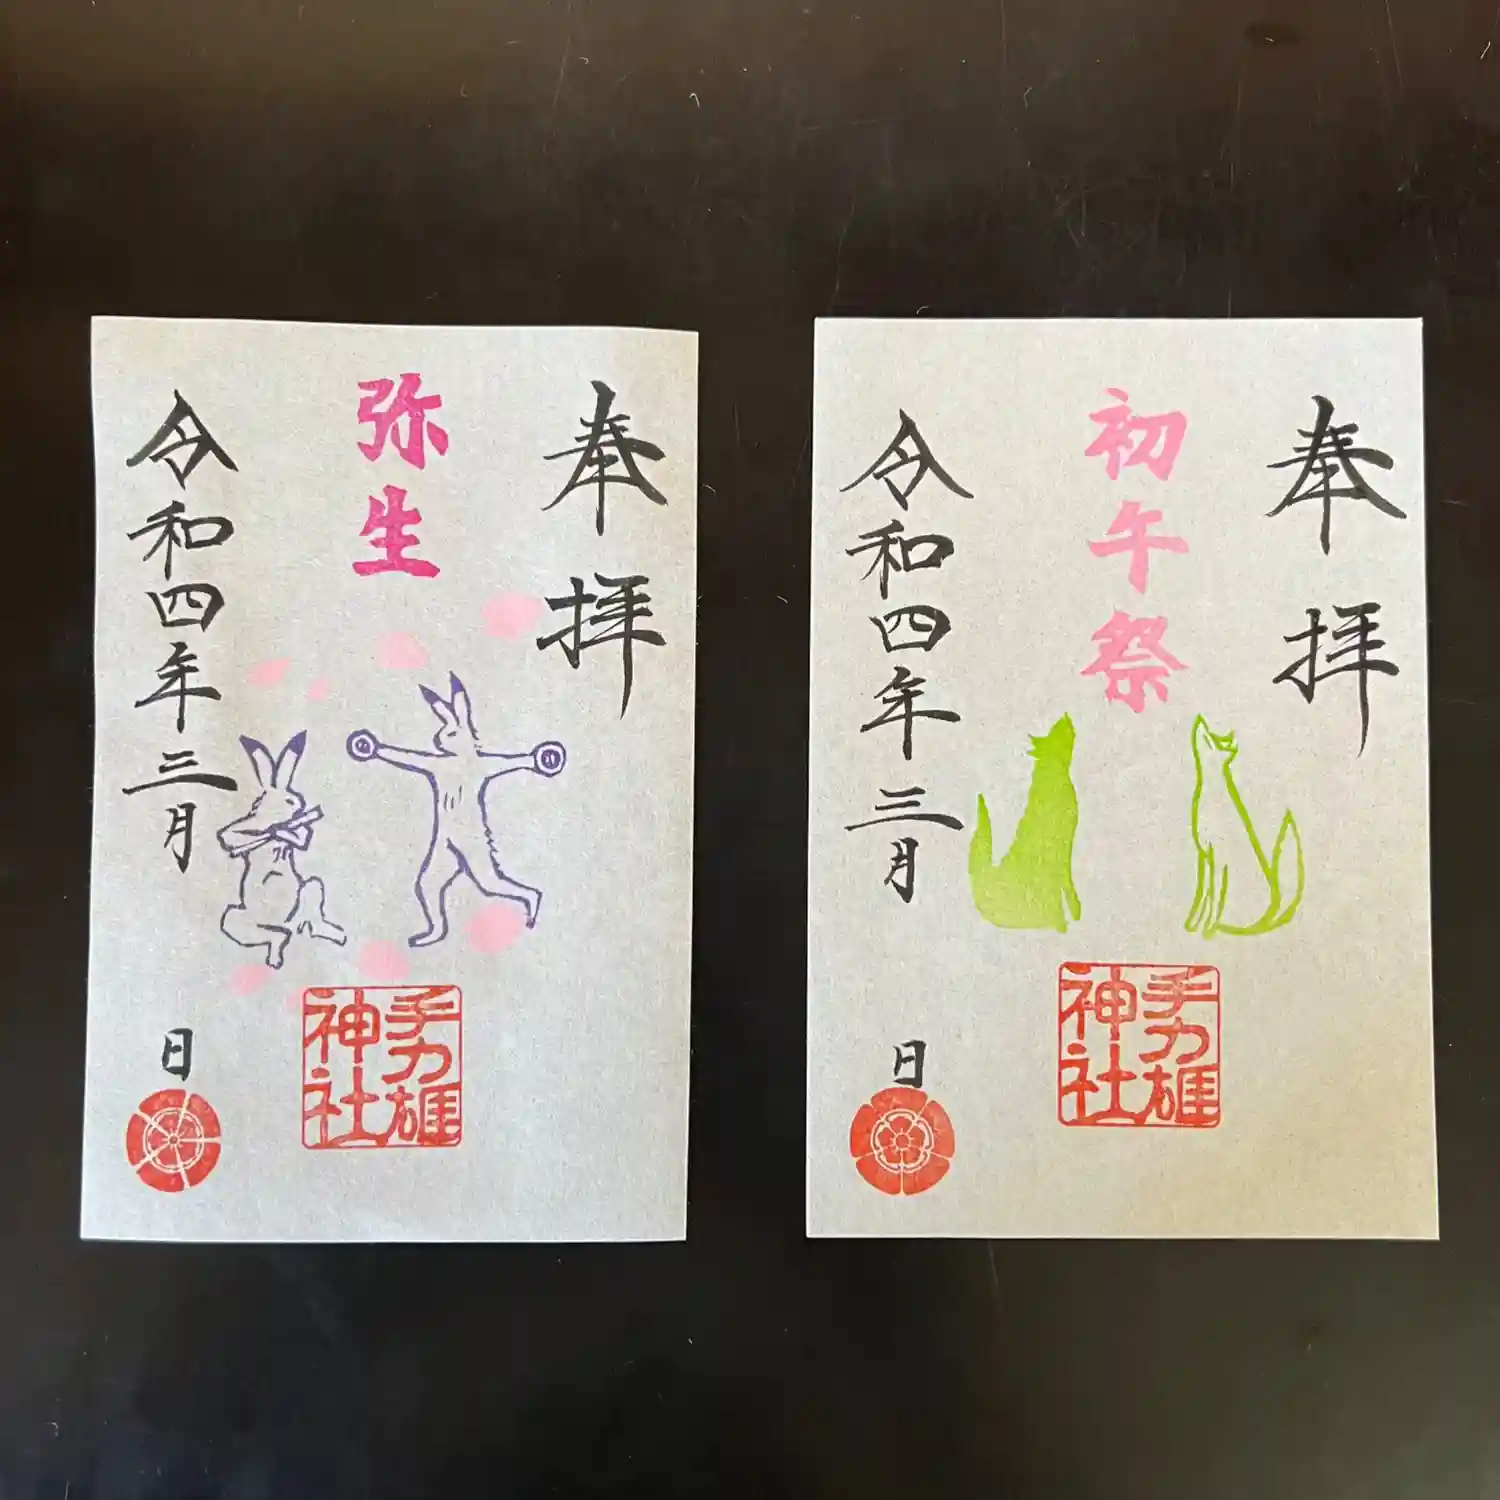 奉拝
弥生
令和四年三月 日
手力雄神社
奉拝
初午祭
令和四年三月 日
手力雄神社